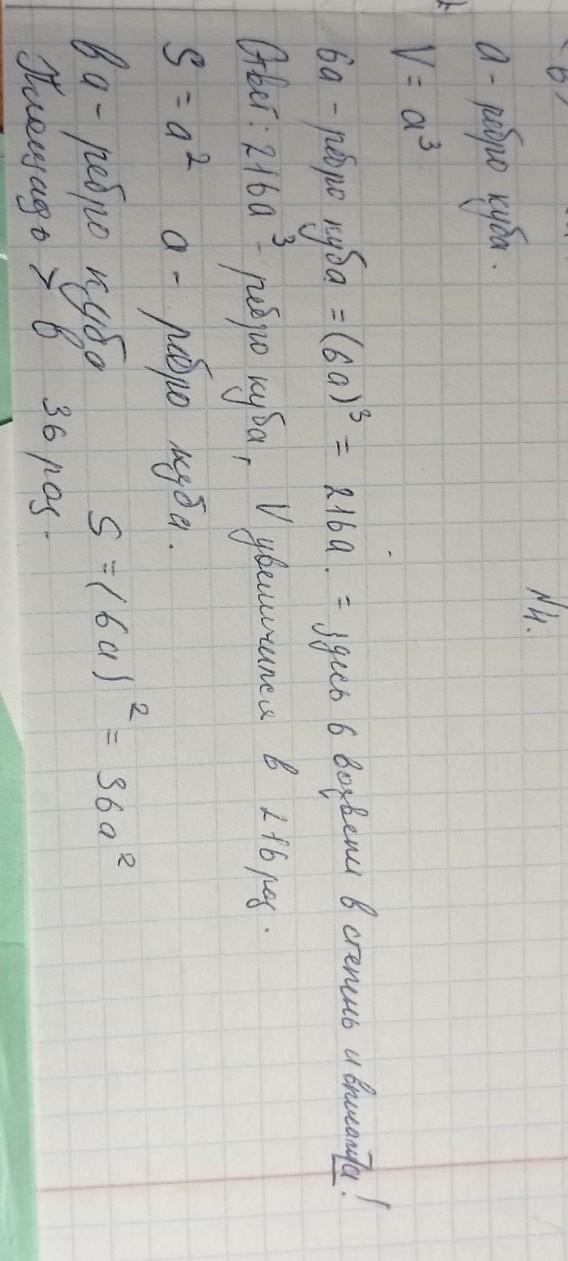 №4.
а - ребро куба.
V = a³
6а - ребро куба = (6а)³ = 216а. = здесь 6 возвели в степень и вписать а!
Ответ: 216а³ - ребро куба, V увеличился в 216 раз.
S = a² а - ребро куба.
6а - ребро куба S = (6а)² = 36а²
Площадь > в 36 раз.